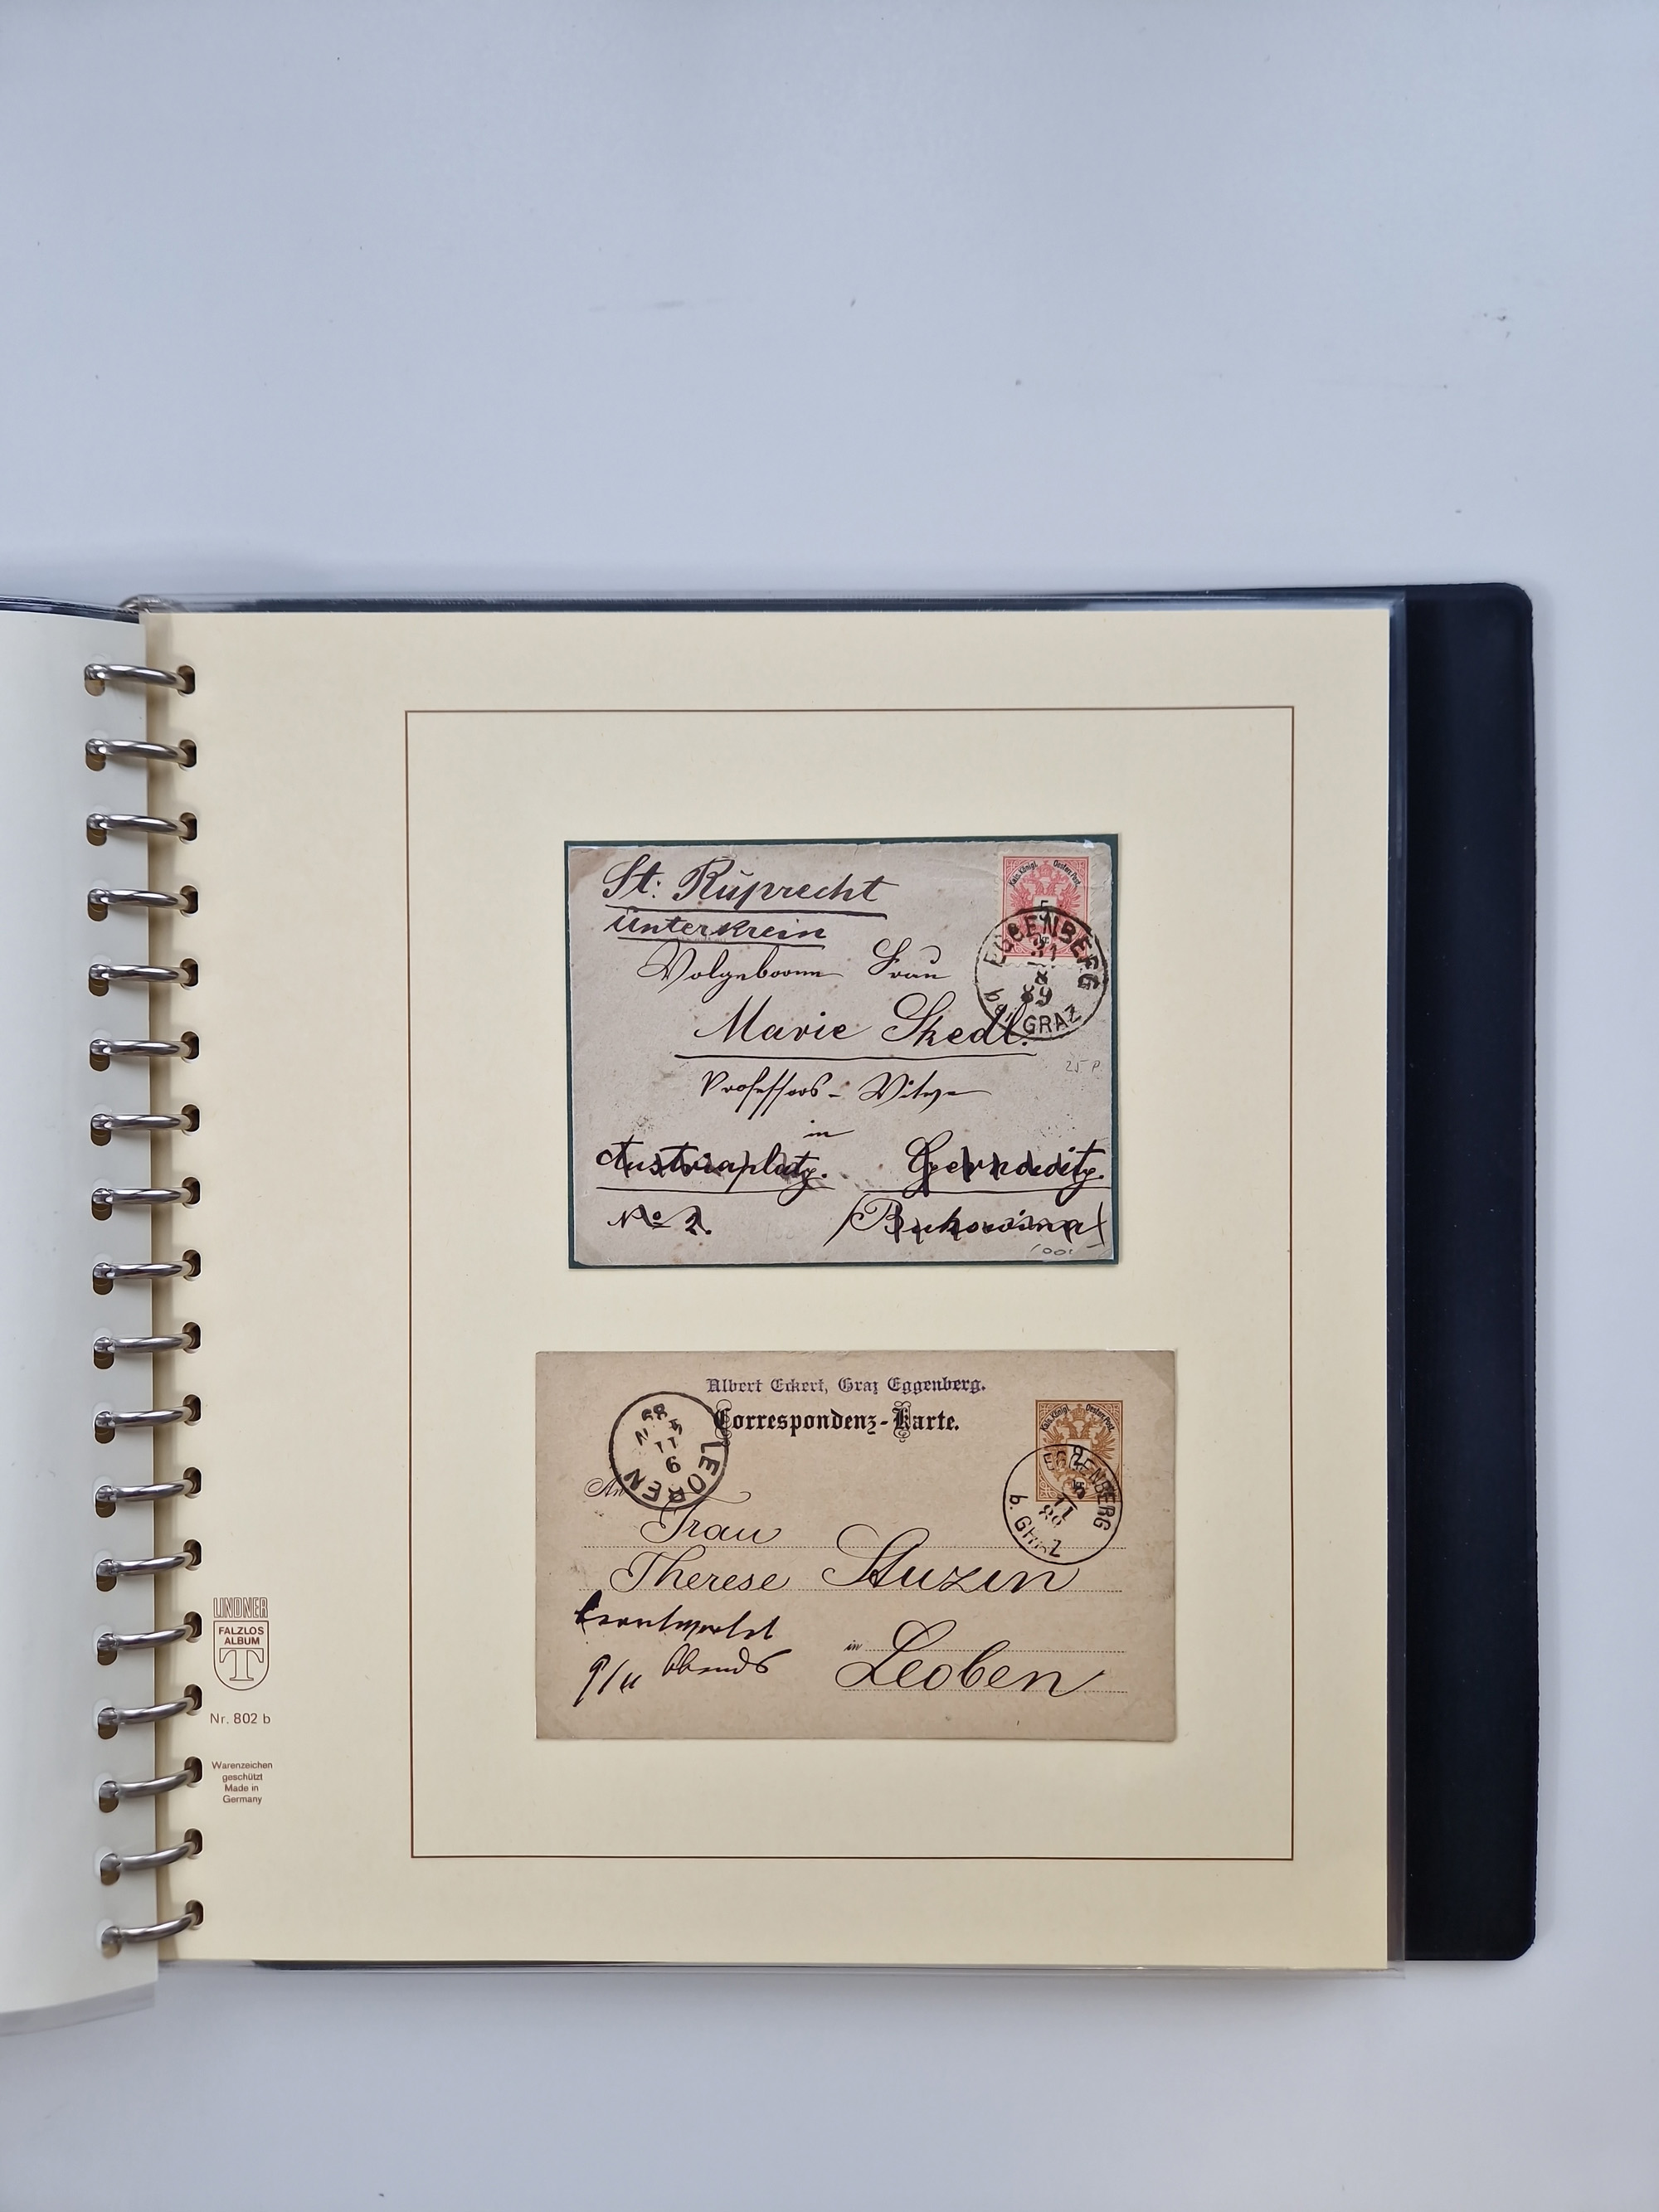 St: Ruprecht
Unterkrein
Frau
Marie Skedl.
Professors-Witwe
in
Austriaplatz.
No 2.
(Bukowina)
Kais. Königl. Oesterr. Post.
5
EGGENBERG
31
8
89
bei GRAZ
25 P
Albert Eckert, Graz Eggenberg.
Correspondenz-Karte.
Kais. Königl. Oesterr. Post.
2
EGGENBERG
11
b. GRAZ
LEOBEN
9
11
89
An
Frau
Therese Stuzin
9/11 Abends
in Leoben
LINDNER
FALZLOS
ALBUM
T
Nr. 802 b
Warenzeichen
geschützt
Made in
Germany